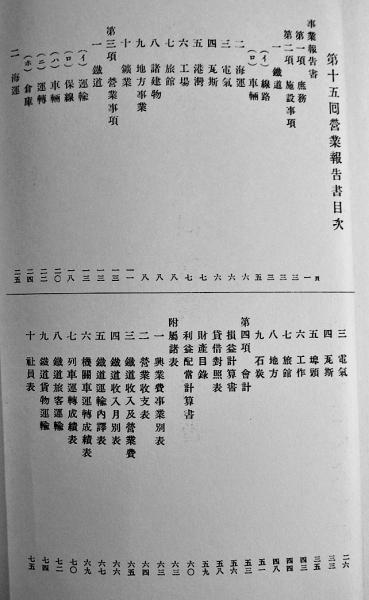 第十五回營業報告書目次
頁
事業報告書
第一項 庶務 一
第二項 施設事項 三
一 鐵道 三
(イ) 線路 三
(ロ) 車輛 五
二 海運 六
三 電氣 六
四 瓦斯 六
五 港灣 七
六 工場 七
七 旅館 八
八 諸建物 八
九 地方事業 八
十 鑛業
第三項 營業事項 一一
一 鐵道 一三
(イ) 運輸 一三
(ロ) 保線 一八
(ハ) 車輛 二〇
(ニ) 運轉 二二
(ホ) 倉庫 二四
二 海運 二五
三 電氣 二六
四 瓦斯 三三
五 埠頭 三五
六 工作 四四
七 旅館 四四
八 地方 四八
九 石炭 五一
第四項 會計 五三
損益計算書 五六
貸借對照表 五八
財產目錄 五九
利益配當計算書 六〇
附屬諸表
一 興業費事業別表 六三
二 營業收支表 六四
三 鐵道收入及營業費 六五
四 鐵道收入月別表 六六
五 鐵道運輸內譯表 六七
六 機關車運轉成績表 六九
七 列車運轉成績表 七〇
八 鐵道旅客運輸 七一
九 鐵道貨物運輸 七四
十 社員表 七五